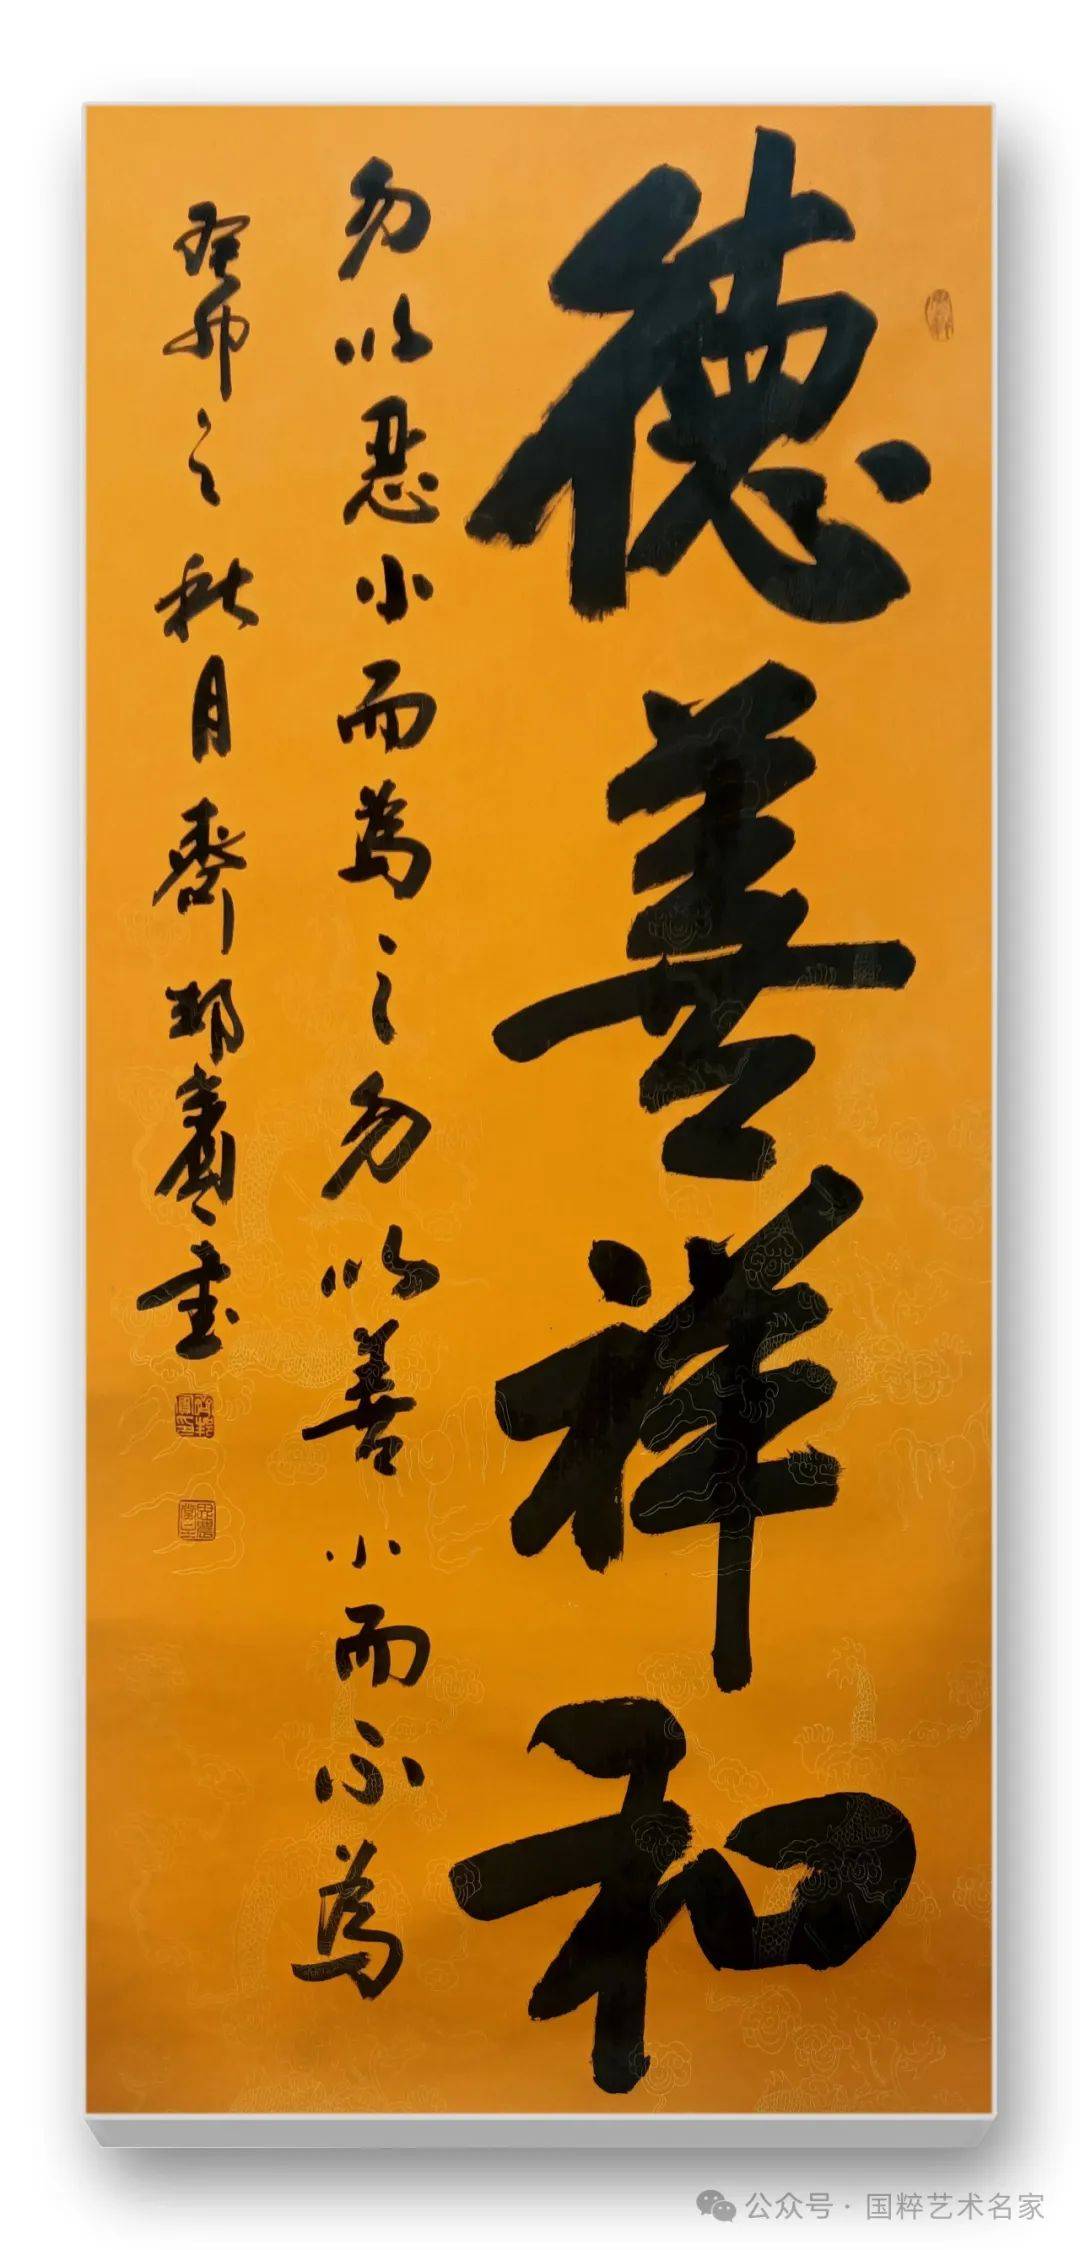 德善祥和
勿以恶小而為之勿以善小而不為
癸卯之秋月齊邦書
公众号·国粹艺术名家